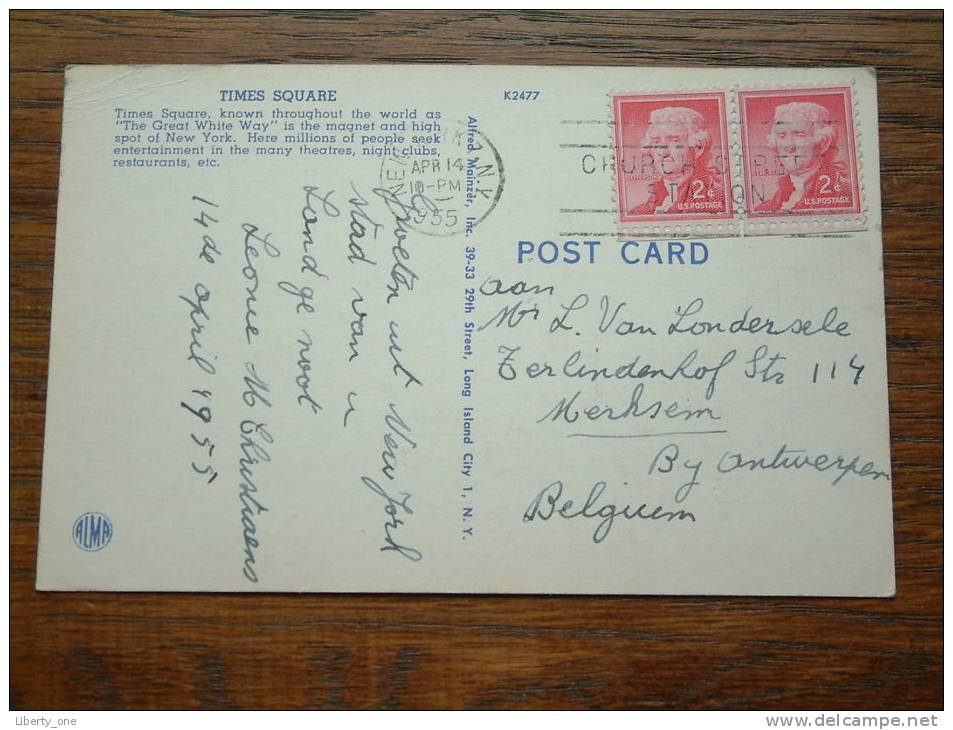 TIMES SQUARE
Times Square, known throughout the world as
"The Great White Way" is the magnet and high
spot of New York. Here millions of people seek
entertainment in the many theatres, night clubs,
restaurants, etc.
K2477
NEW YORK, N.Y.
APR 14
10-PM
1955
CHURCH STREET
STATION
2¢
U.S. POSTAGE
2¢
U.S. POSTAGE
POST CARD
Alfred Mainzer, Inc. 39-33 29th Street, Long Island City 1, N. Y.
Groeten uit New York
stad van u
Landgenoot
Leonie M Christiaens
14 de april 1955
aan
Mr L. Van Londersele
Terlindenhof Str 114
Merksem
By Antwerpen
Belguem
ALMA
Liberty_one
www.delcampe.net